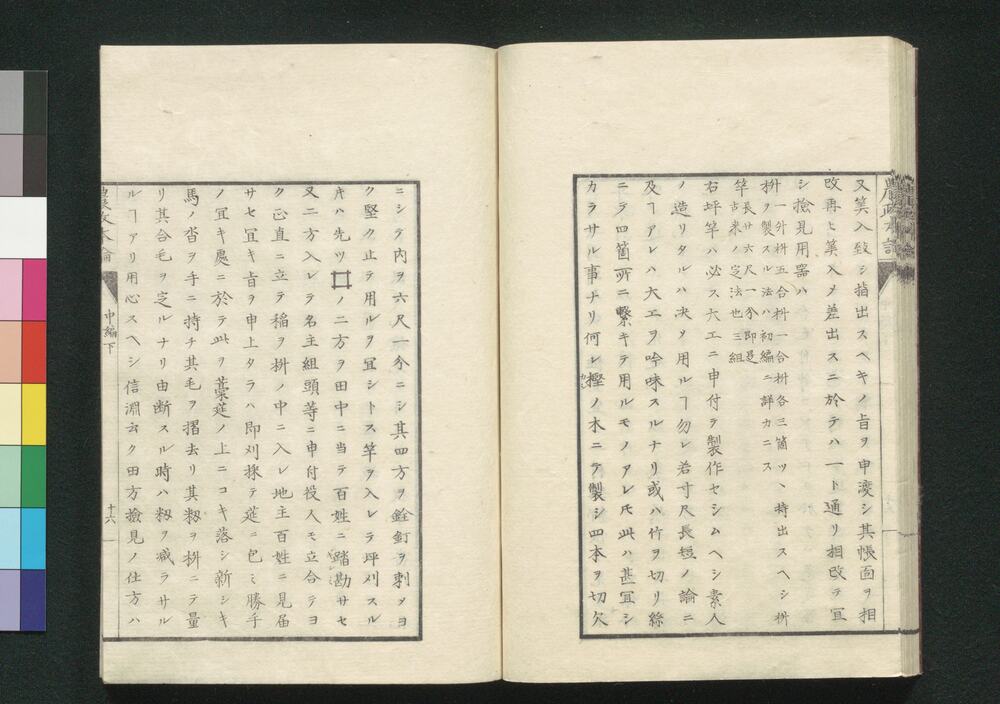 又筭入致シ指出スヘキノ旨ヲ申渡シ其帳面ヲ相
改再ヒ筭入メ差出スニ於テハ一ト通リ相改テ冝
シ撿見用噐ハ
枡一外枡五合枡一合枡各三箇ツヽ持出スヘシ枡
枡ヲ製スル法ハ初編ニ詳カニス
竿長サ六尺一分即是
古来ノ定法也三組
右坪竿ハ必ス大工ニ申付テ製作セシムヘシ素人
ノ造リタルハ决ヲ用ルヿ勿レ若寸尺長短ノ論ニ
及ヿアレハ大工ヲ吟味スルナリ或ハ竹ヲ切リ絲
ニテ四箇所ニ繋キテ用ルモノアレ𪜈此ハ甚冝シ
カラサル事ナリ何レ樫ノ木ニテ製シ四本ヲ切欠
ニシテ内ヲ六尺一分ニシ其四方ヲ銓釘ヲ刺メヨ
ク堅ク止テ用ルヲ冝シトス竿ヲ入レテ坪刈スル
𪜈ハ先ツ口ノ二方ヲ田中ニ当テ百姓ニ踏勘サセ
又二方入レテ名主組頭等ニ申付役人モ立合テヨ
ク正直ニ立テ稲ヲ枡ノ中ニ入レ地主百姓ニ見届
サセ冝キ旨ヲ申上タラハ即刈採テ莚ニ包ミ勝手
ノ冝キ處ニ於テ此ヲ藁莚ノ上ニコキ落シ新シキ
馬ノ沓ヲ手ニ持チ其毛ヲ摺去リ其籾ヲ枡ニテ量
リ其合毛ヲ定ルナリ由断スル時ハ籾ヲ減ラサル
ルヿアリ用心スヘシ信淵云ク田方撿見ノ仕方ハ
農政本論
中編下
十六